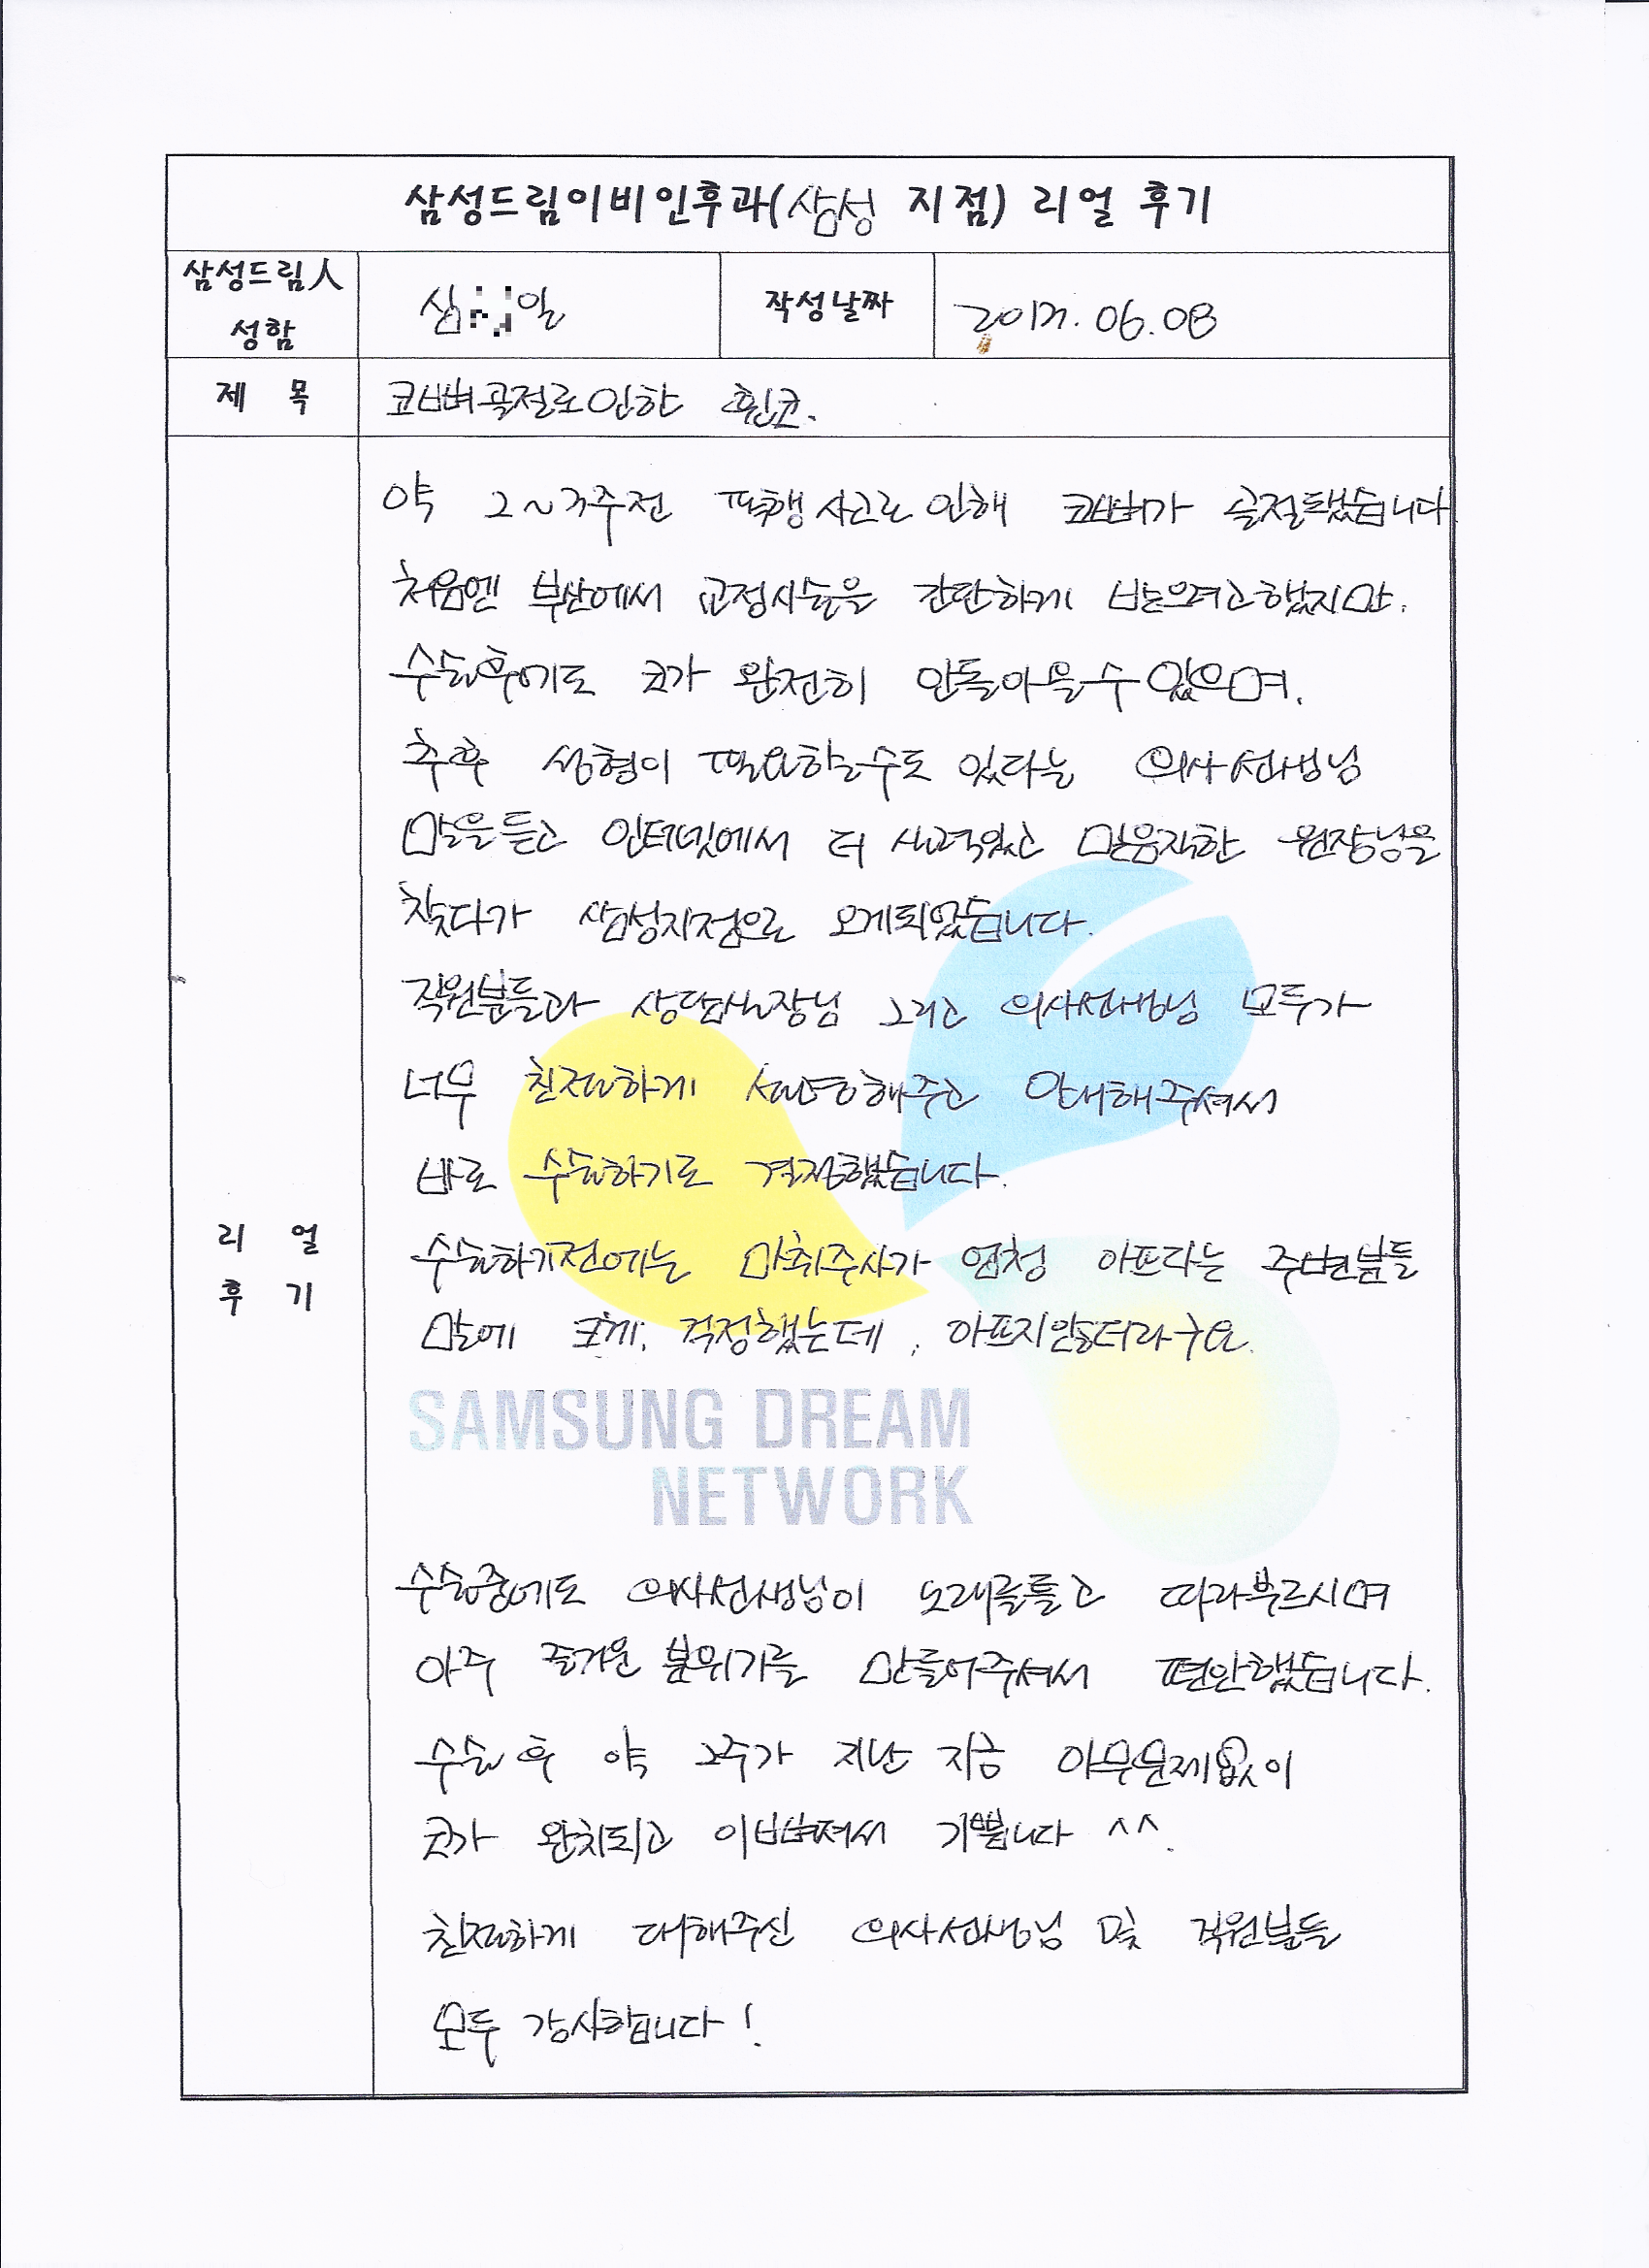 삼성드림이비인후과(삼성 지점) 리얼 후기
삼성드림人 성함
심 일
작성날짜
2017. 06. 08
제 목
코뼈골절로인한 휜코.
리 얼 후 기
약 2~3주전 폭행사고로 인해 코뼈가 골절됐습니다
처음엔 부산에서 교정시술을 간단하게 받으려고했지만.
수술후에도 코가 완전히 안돌아올수 있으며.
추후 성형이 필요할수도 있다는 의사선생님
말을듣고 인터넷에서 더 실력있고 믿음직한 원장님을
찾다가 삼성지점으로 오게되었습니다.
직원분들과 상담실장님 그리고 의사선생님 모두가
너무 친절하게 설명해주고 안내해주셔서
바로 수술하기로 결정했습니다.
수술하기전에는 마취주사가 엄청 아프다는 주변분들
말에 크게. 걱정했는데, 아프지않더라구요.
SAMSUNG DREAM
NETWORK
수술중에도 의사선생님이 노래를틀고 따라부르시며
아주 즐거운 분위기를 만들어주셔서 편안했습니다.
수술 후 약 2주가 지난 지금 아무문제없이
코가 완치되고 이뻐져서 기쁩니다 ^^.
친절하게 대해주신 의사선생님 및 직원분들
모두 감사합니다!